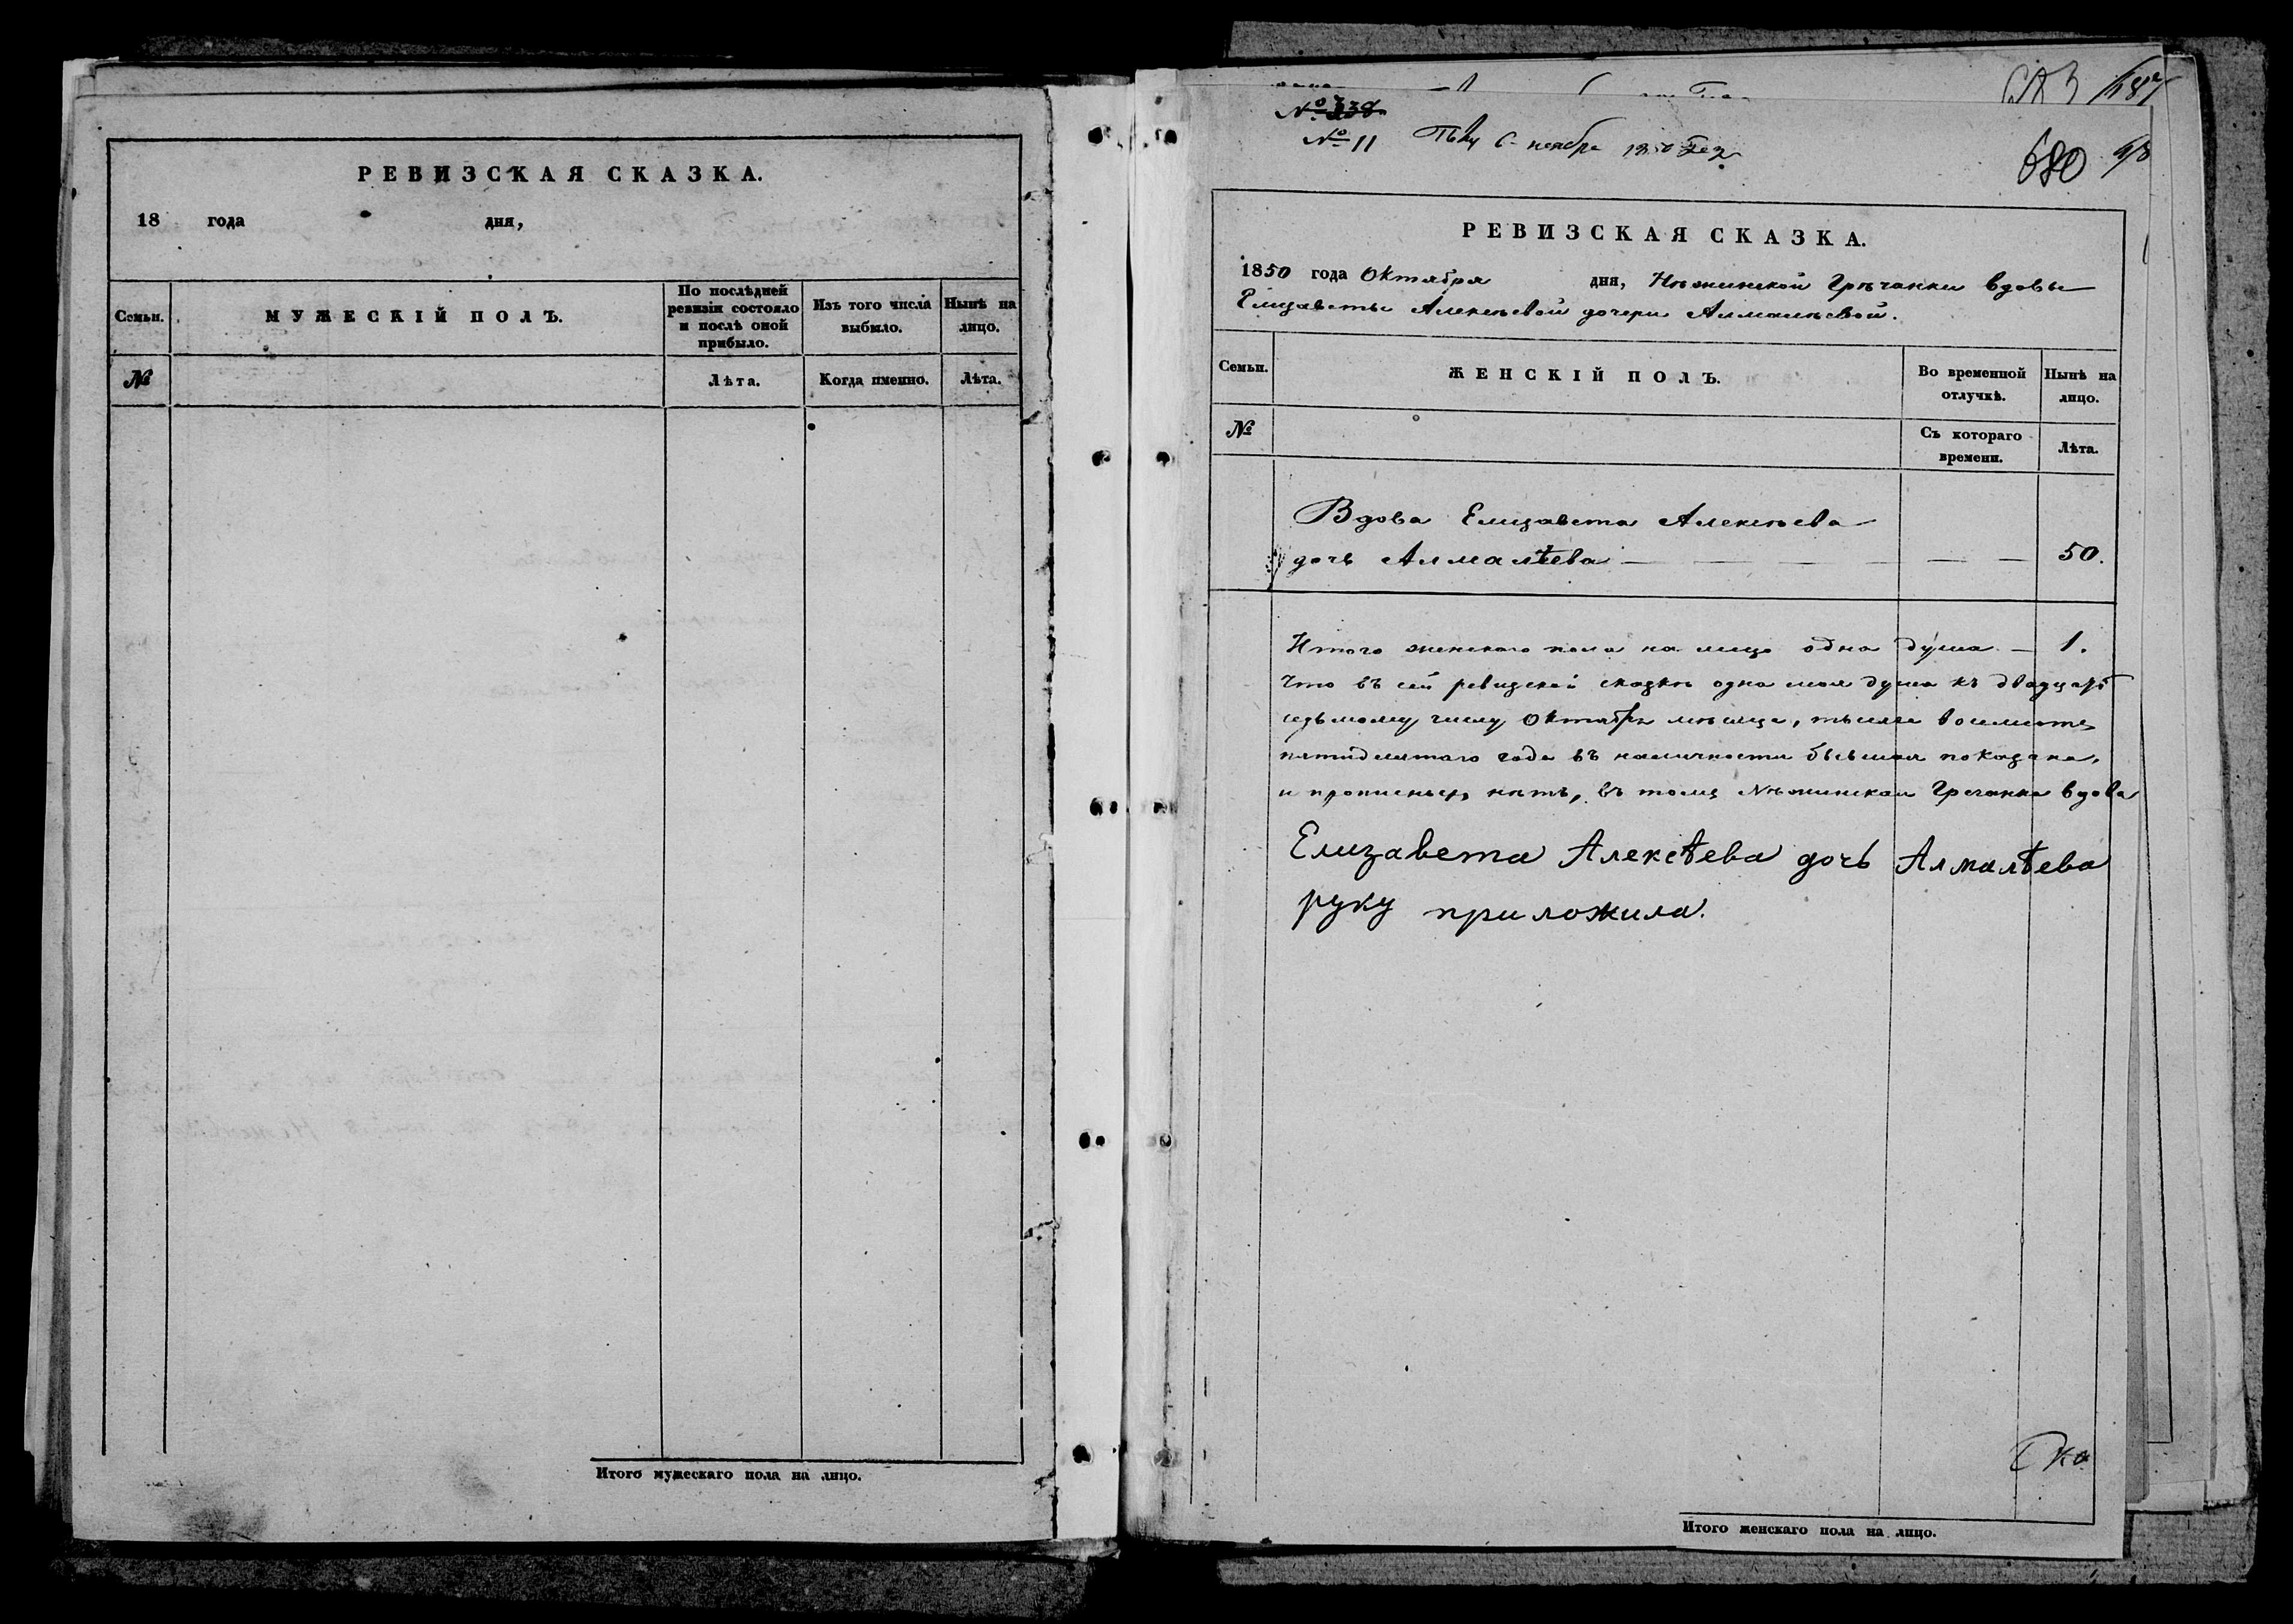 РЕВИЗСКАЯ СКАЗКА.
18 года дня,
Семьи.
МУЖЕСКІЙ ПОЛЪ.
По послѣдней
ревизіи состояло
и послѣ оной
прибыло.
Изъ того числа
выбыло.
Нынѣ на
лицо.
№
Лѣта.
Когда именно.
Лѣта.
Итого мужескаго пола на лицо.
№ 11
ноября 1850
680
РЕВИЗСКАЯ СКАЗКА.
1850 года Октября дня, Нѣжинской Гречанки вдовы
Елизаветы Алексѣевой дочери Алмалѣевой.
Семьи.
ЖЕНСКІЙ ПОЛЪ.
Во временной
отлучкѣ.
Нынѣ на
лицо.
№
Съ котораго
времени.
Лѣта.
Вдова Елизавета Алексѣева
дочь Алмалѣева — — — — — — 50.
Итого женскаго пола на лицо одна душа — 1.
Что въ сей ревизской сказкѣ одна моя душа къ двадцать
седьмому числу Октября мѣсяца, тысяча восемьсотъ
пятидесятаго года въ наличности бывшая показана,
и прописныхъ нѣтъ, въ томъ Нѣжинская Гречанка вдова
Елизавета Алексѣева дочь Алмалѣева
руку приложила.
Итого женскаго пола на лицо.